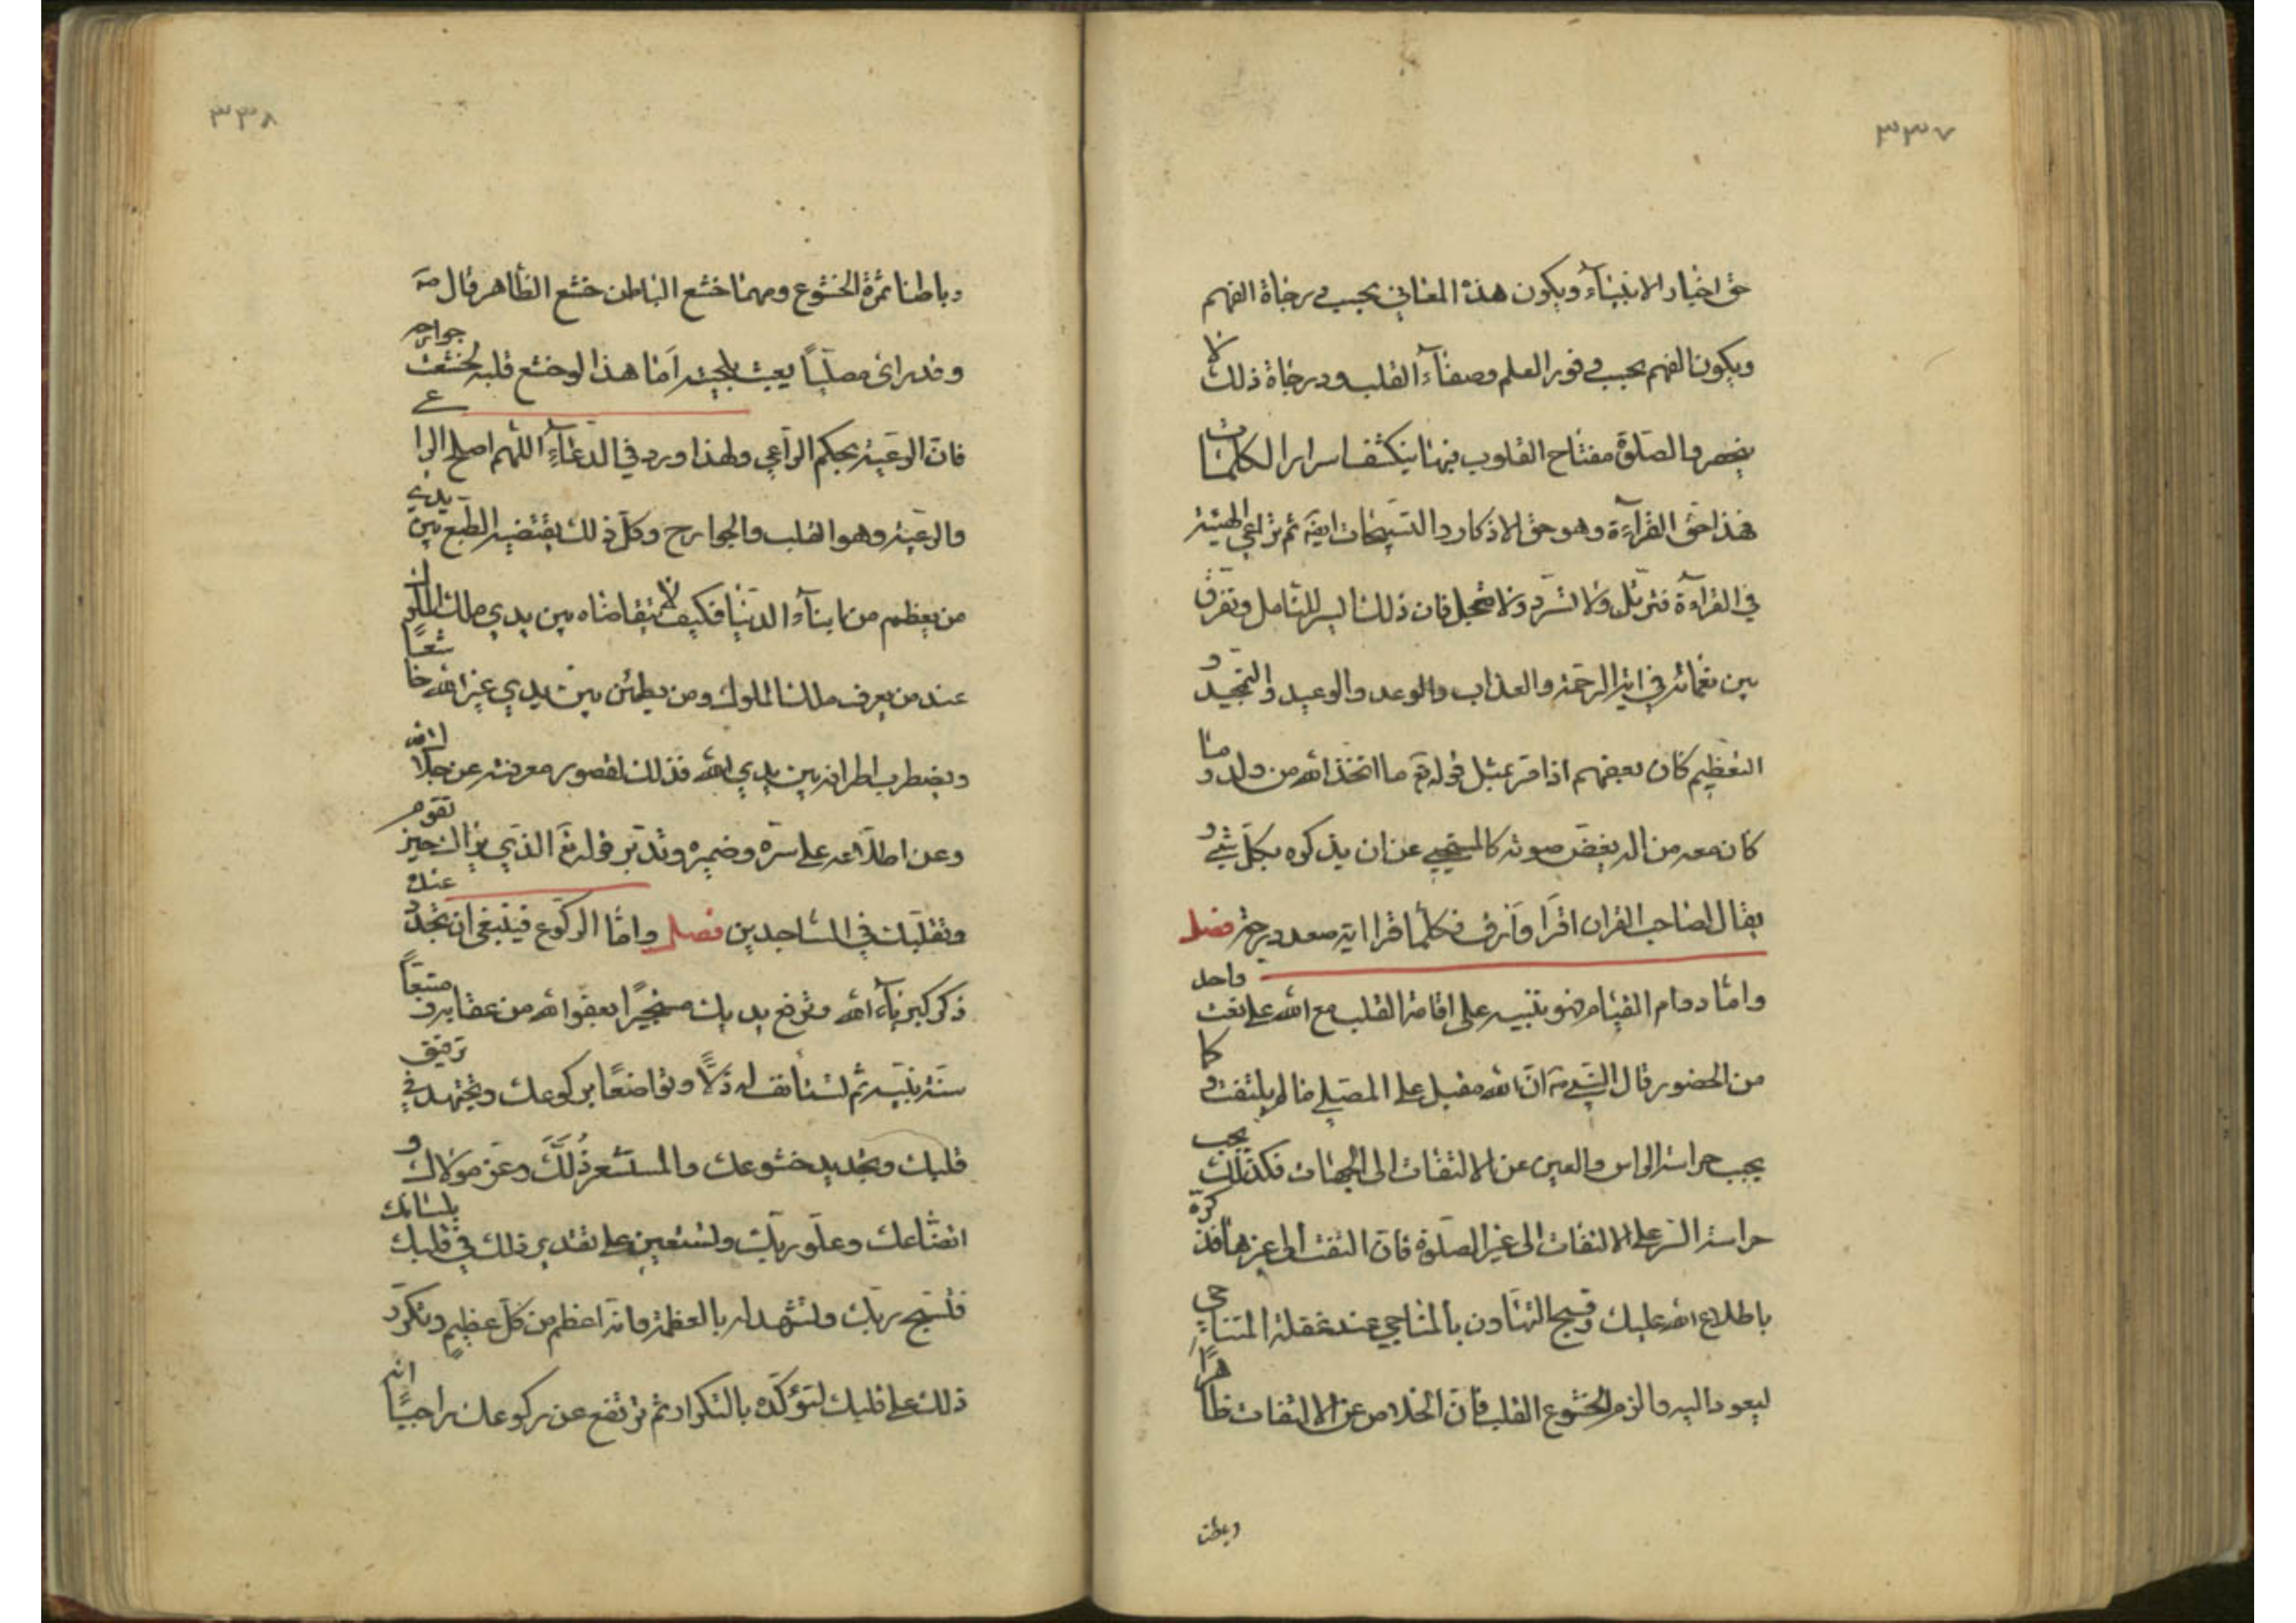 ٣٣٧
حق اخبار الانبياء ويكون هذه المعاني بحسب درجاة الفهم
ويكون الفهم بحسب وفور العلم وصفاء القلب ودرجاة ذلك لا
ينحصر والصلوة مفتاح القلوب فيها ينكشف اسرار الكلمات
فهذا حق القراءة وهو حق الاذكار والتسبيحات ايضا ثم تراعي الهيئة
في القراءة فترتل ولا تسرد ولا تعجل فان ذلك ايسر للتامل وتفرق
بين نغماته في اية الرحمة والعذاب والوعد والوعيد والتمجيد و
التعظيم كان بعضهم اذا مر بمثل قوله تع ما اتخذ الله من ولد وما
كان معه من اله يغض صوته كالمستحيي عن ان يذكره بكل شيء و
يقال لصاحب القران اقرا وارق فكلما قرا اية صعد درجة فصل
واما دوام القيام فهو تنبيه على اقامة القلب مع الله على نعت واحد
من الحضور قال النبي ص ان الله مقبل على المصلي ما لم يلتفت وكما
يجب حراسة الراس والعين عن الالتفات الى الجهات فكذلك يجب
حراسة السر على الالتفات الى غير الصلوة فان التفت الى غيرها فذكره
باطلاع الله عليك وقبح التهاون بالمناجي عند غفلة المتناجي
ليعود اليه والزم الخشوع القلب فان الخلاص عن الالتفات ظاهرا
وباطنا
٣٣٨
وباطنا ثمرة الخشوع ومهما خشع الباطن خشع الظاهر قال ص
وقد راى مصليا يعبث بلحيته اما هذا لو خشع قلبه لخشعت جوارحه
فان الرعية بحكم الراعي ولهذا ورد في الدعاء اللهم اصلح الراعي
والرعية وهو القلب والجوارح وكل ذلك يقتضيه الطبع بين يدي
من يعظم من ابناء الدنيا فكيف لا يتقاضاه بين يدي ملك الملوك
عند من يعرف ملك الملوك ومن يطمئن بين يدي غير الله خاشعا
ويضطرب اطرافه بين يدي الله فذلك لقصور معرفته عن جلال الله
وعن اطلاعه على سره وضميره وتدبر قوله تع الذي يراك حين تقوم
وتقلبك في الساجدين فصل واما الركوع فينبغي ان تجدد عنده
ذكر كبرياء الله وترفع يديك مستجيرا بعفو الله من عقابه ومتبعا
سنة نبيه ثم تستأنف له ذلا وتواضعا بركوعك وتجتهد في ترقيق
قلبك وتجديد خشوعك والمستشعر ذلك وعز مولاك و
اتضاعك وعلو ربك وتستعين على تقدير ذلك في قلبك بلسانك
فتسبح ربك وتشهد له بالعظمة وانه اعظم من كل عظيم وتكرر
ذلك على قلبك لتؤكده بالتكرار ثم ترتفع عن ركوعك راجيا انه